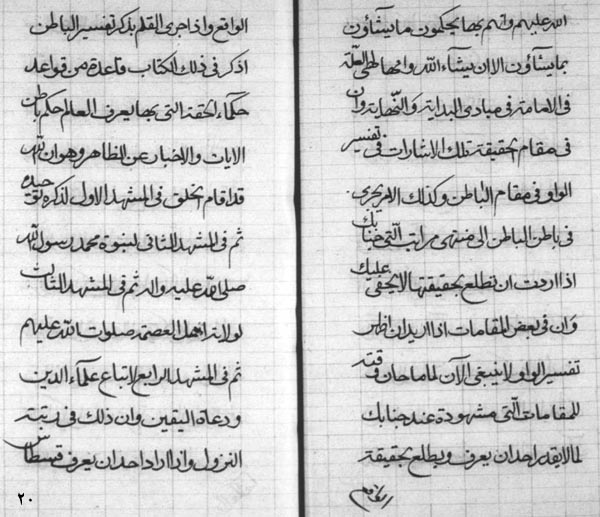 الله عليهم وانهم بها يحكمون ما يشاؤن
بما يشاؤن الا ان يشاء الله وانها لهي العلّة
في الاقامة في مبادى البداية والنّهاية وان
في مقام الحقيقة تلك الاشارات في تفسير
الواو في مقام الباطن وكذلك الامر يجرى
في باطن الباطن الى منتهى مراتب الّتي جنابك
اذا اردت ان تطلع بحقيقتها لا يخفى عليك
وان في بعض المقامات اذا اريد ان اظهر
تفسير الواو لا ينبغي الآن لما ما حان وقته
للمقامات الّتي مشهودة عند جنابك
لما لا يقدر احد ان يعرف ويطلع بحقيقة
الواقع
الواقع واذا جرى القلم بذكر تفسير الباطن
اذكر في ذلك الكتاب قاعدة من قواعد
حكماء الحقة التي بها يعرف العالم حكم باطن
الايات والاخبار عن الظاهر وهو ان الله
قد اقام الخلق في المشهد الاول لذكر توحيده
ثم في المشهد الثاني لنبوة محمد رسول الله
صلى الله عليه واله ثم في المشهد الثالث
لولاية اهل العصمة صلوات الله عليهم
ثم في المشهد الرابع لاتباع علماء الدين
ودعاة اليقين وان ذلك في رتبة
النزول واذا اراد احد ان يعرف قسطاس
٢٠